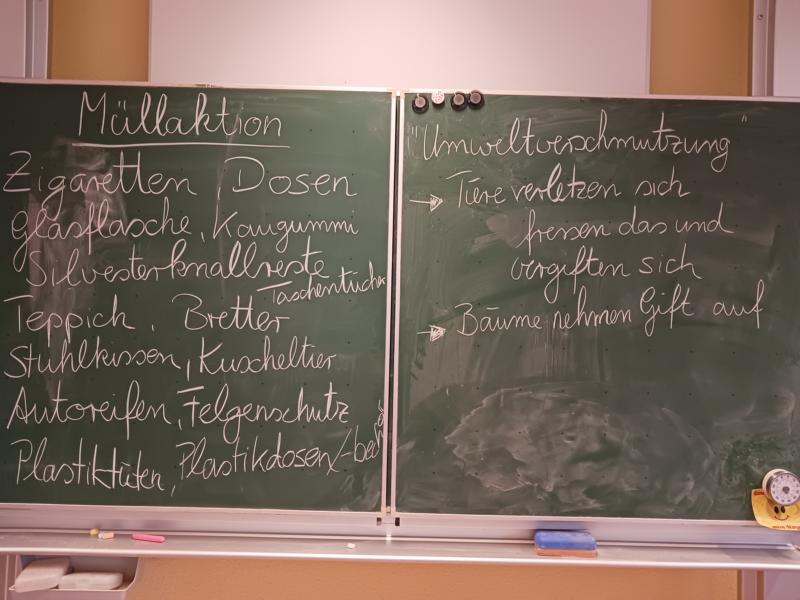 Müllaktion
Zigaretten, Dosen
Glasflasche, Kaugummi
Silvesterknallreste
Taschentücher
Teppich, Bretter
Stuhlkissen, Kuscheltier
Autoreifen, Felgenschutz
Plastiktüten, Plastikdosen/-becher
"Umweltverschmutzung"
→ Tiere verletzen sich
fressen das und
vergiften sich
→ Bäume nehmen Gift auf